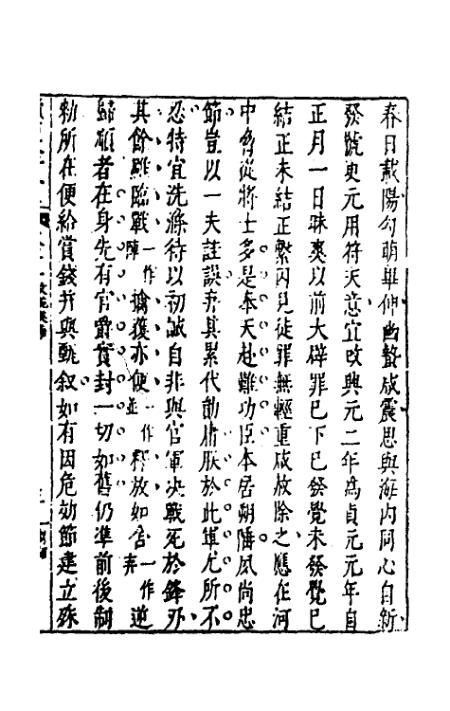 春日載陽勾萌畢伸幽蟄咸震思與海内同心自新
發號更元用符天意宜改興元二年為貞元元年自
正月一日昧爽以前大辟罪已下已發覺未發覺已
結正未結正繫囚見徒罪無輕重咸赦除之應在河
中脅從將士多是奉天赴難功臣本居朔陲夙尚忠
節豈以一夫詿誤弃其累代勳庸朕於此軍尤所不
忍特宜洗滌待以初誠自非與官軍決戰死於鋒刃
其餘雖臨戰一作陣擒獲亦便一作並釋放如舍一作弃逆
歸順者在身先有官爵實封一切如舊仍準前後制
勑所在便給賞錢并與甄叙如有因危効節建立殊